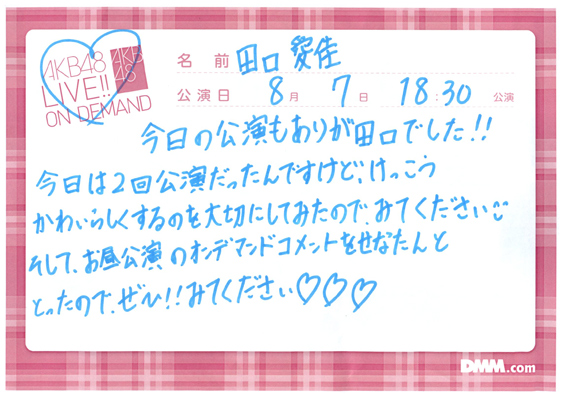 AKB48
LIVE!!
ON DEMAND
AKB
48
名前 田口 愛佳
公演日 8月 7日 18:30 公演
今日の公演もありが田口でした!!
今日は2回公演だったんですけど、けっこう
かわいらしくするのを大切にしてみたので、みてください
そして、お昼公演のオンデマンドコメントをせなたんと
とったので、ぜひ!!みてください♡♡♡
DMM.com